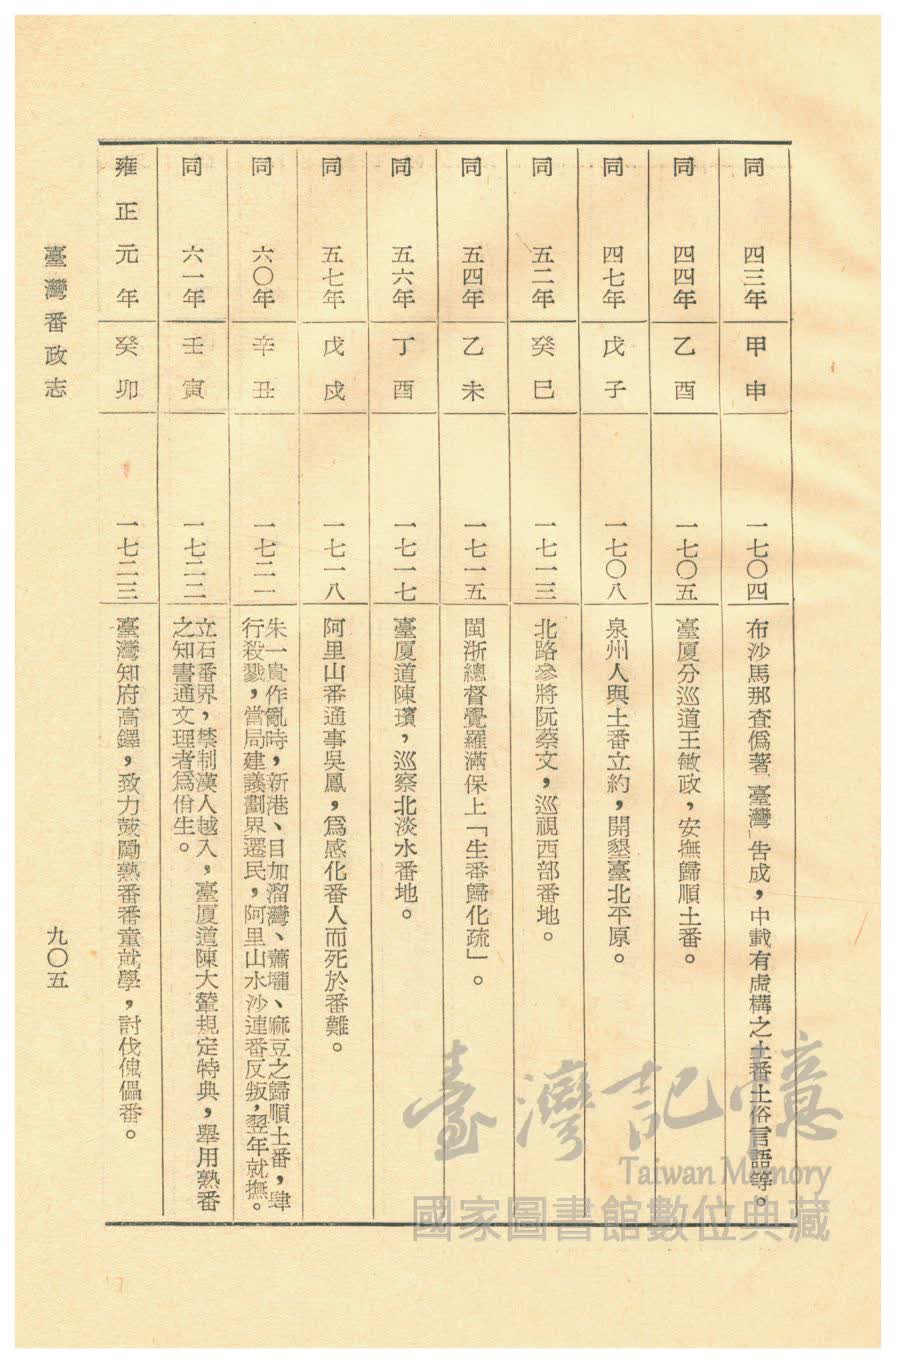 同　四三年　甲申　一七〇四　布沙馬那查僞著「臺灣」告成，中載有虛構之土番土俗言語等。
同　四四年　乙酉　一七〇五　臺厦分巡道王敏政，安撫歸順土番。
同　四七年　戊子　一七〇八　泉州人與土番立約，開墾臺北平原。
同　五二年　癸巳　一七一三　北路參將阮蔡文，巡視西部番地。
同　五四年　乙未　一七一五　閩浙總督覺羅滿保上「生番歸化疏」。
同　五六年　丁酉　一七一七　臺厦道陳璸，巡察北淡水番地。
同　五七年　戊戌　一七一八　阿里山番通事吳鳳，爲感化番人而死於番難。
同　六〇年　辛丑　一七二一　朱一貴作亂時，新港、目加溜灣、蕭壠、麻豆之歸順土番，肆
行殺戮，當局建議劃界遷民，阿里山水沙連番反叛，翌年就撫。
同　六一年　壬寅　一七二二　立石番界，禁制漢人越入，臺厦道陳大輦規定特典，舉用熟番
之知書通文理者爲佾生。
雍正元年　癸卯　一七二三　臺灣知府高鐸，致力鼓勵熟番番童就學，討伐傀儡番。
臺灣番政志
九〇五
臺灣記憶
Taiwan Memory
國家圖書館數位典藏